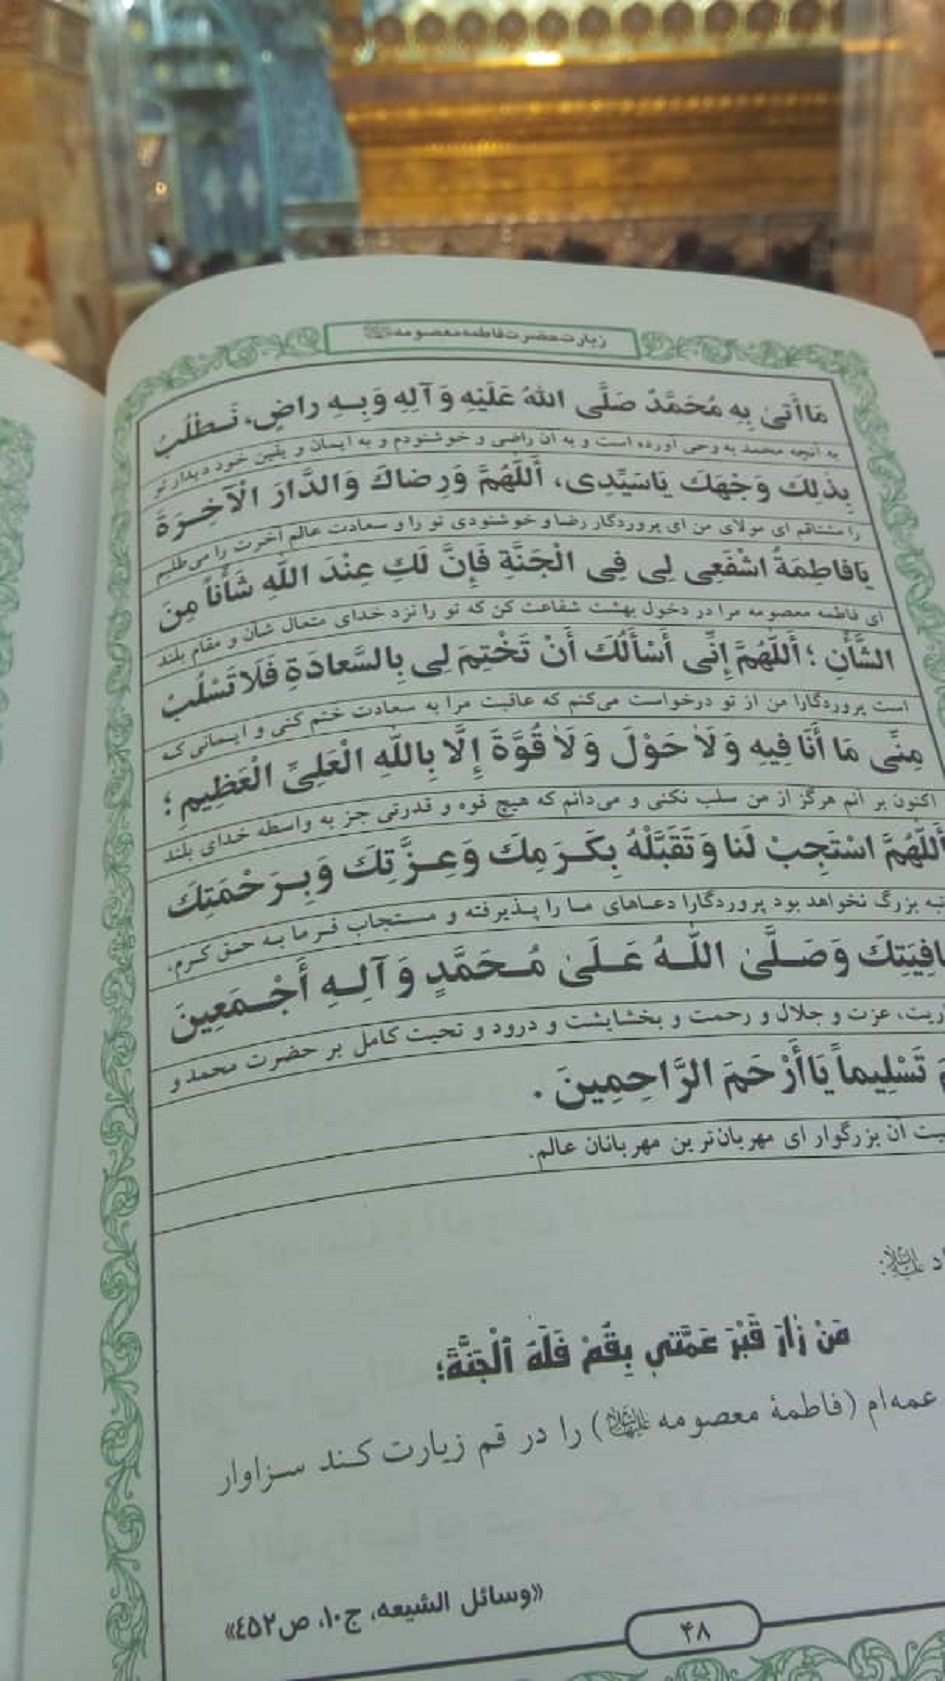 زیارت حضرت فاطمه معصومه
مَا أَتىٰ بِهِ مُحَمَّدٌ صَلَّى اللهُ عَلَيْهِ وَآلِهِ وَبِهِ راضٍ، نَطْلُبُ
به آنچه محمد به وحی آورده است و به آن راضی و خوشنودم و به ایمان و یقین خود دیدار تو
بِذٰلِكَ وَجْهَكَ يَاسَيِّدِى، أَللّٰهُمَّ وَرِضاكَ وَالدَّارَ الْآخِرَةَ
را مشتاقم ای مولای من ای پروردگار رضا و خوشنودی تو را و سعادت عالم آخرت را می‌طلبم
يَافاطِمَةُ اشْفَعِى لِى فِى الْجَنَّةِ فَإِنَّ لَكِ عِنْدَ اللّٰهِ شَأْناً مِنَ
ای فاطمه معصومه مرا در دخول بهشت شفاعت کن که تو را نزد خدای متعال شأن و مقام بلند
الشَّأْنِ ؛ أَللّٰهُمَّ إِنِّى أَسْأَلُكَ أَنْ تَخْتِمَ لِى بِالسَّعادَةِ فَلَا تَسْلُبْ
است پروردگارا من از تو درخواست می‌کنم که عاقبت مرا به سعادت ختم کنی و ایمانی که
مِنِّى مَا أَنَا فِيهِ وَلَا حَوْلَ وَلَا قُوَّةَ إِلَّا بِاللّٰهِ الْعَلِىِّ الْعَظِيمِ ؛
اکنون بر آنم هرگز از من سلب نکنی و می‌دانم که هیچ قوه و قدرتی جز به واسطه خدای بلند
أَللّٰهُمَّ اسْتَجِبْ لَنا وَتَقَبَّلْهُ بِكَرَمِكَ وَعِزَّتِكَ وَبِرَحْمَتِكَ
بزرگ نخواهد بود پروردگارا دعاهای ما را پذیرفته و مستجاب فرما به حق کرم،
افِيَتِكَ وَصَلَّىٰ اللّٰهُ عَلَىٰ مُحَمَّدٍ وَآلِهِ أَجْمَعِينَ
عزت و جلال و رحمت و بخشایشت و درود و تحیت کامل بر حضرت محمد و
تَسْلِيماً يَا أَرْحَمَ الرَّاحِمِينَ .
آن بزرگوار ای مهربان‌ترین مهربانان عالم.
مَنْ زٰارَ قَبْرَ عَمَّتِي بِقُمْ فَلَهُ ٱلْجَنَّةُ؛
عمه‌ام (فاطمهٔ معصومه علیهاالسلام) را در قم زیارت کند سزاوار
«وسائل الشیعه، ج۱۰، ص۴۵۲»
۴۸